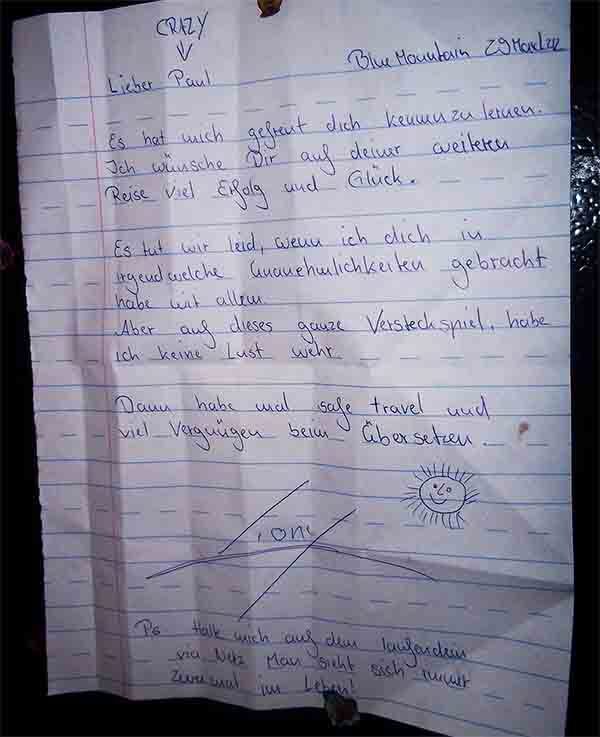 CRAZY
Blue Mountain 29 März 22
Lieber Paul
Es hat mich gefreut dich kennenzulernen.
Ich wünsche Dir auf deiner weiteren
Reise viel Erfolg und Glück.
Es tut mir leid, wenn ich dich in
irgendwelche Unanehmlichkeiten gebracht
habe mit allem
Aber auf dieses ganze Versteckspiel, habe
ich keine Lust mehr
Dann habe mal safe travel und
viel Vergnügen beim Übersetzen.
Ps Halt mich auf dem laufendem
via Netz Man sieht sich immer
zweimal im Leben!